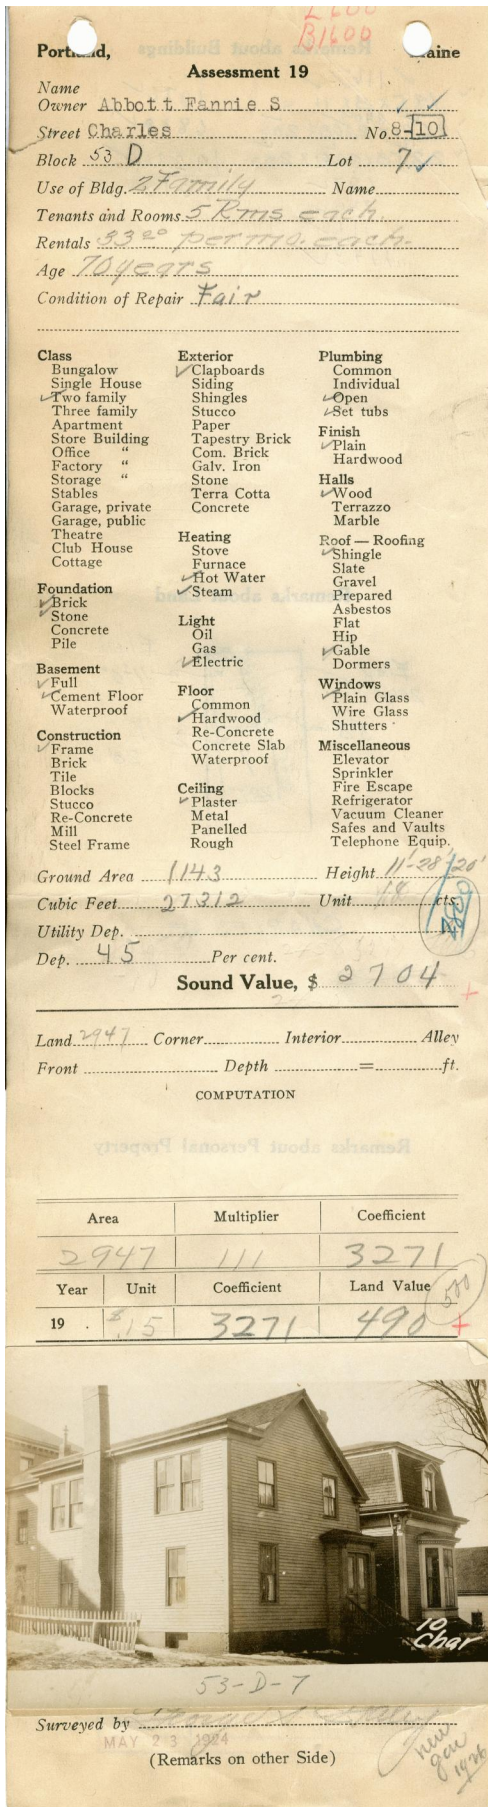 L 600
B1600
Portland, Maine
Assessment 19
Name
Owner Abbott Fannie S
Street Charles No. 8-10
Block 53 D Lot 7
Use of Bldg. 2 Family Name
Tenants and Rooms 5 Rms each.
Rentals 33 00 per mo. each.
Age 70 years
Condition of Repair Fair
Class
Bungalow
Single House
Two family
Three family
Apartment
Store Building
Office "
Factory "
Storage "
Stables
Garage, private
Garage, public
Theatre
Club House
Cottage
Foundation
Brick
Stone
Concrete
Pile
Basement
Full
Cement Floor
Waterproof
Construction
Frame
Brick
Tile
Blocks
Stucco
Re-Concrete
Mill
Steel Frame
Exterior
Clapboards
Siding
Shingles
Stucco
Paper
Tapestry Brick
Com. Brick
Galv. Iron
Stone
Terra Cotta
Concrete
Heating
Stove
Furnace
Hot Water
Steam
Light
Oil
Gas
Electric
Floor
Common
Hardwood
Re-Concrete
Concrete Slab
Waterproof
Ceiling
Plaster
Metal
Panelled
Rough
Plumbing
Common
Individual
Open
Set tubs
Finish
Plain
Hardwood
Halls
Wood
Terrazzo
Marble
Roof — Roofing
Shingle
Slate
Gravel
Prepared
Asbestos
Flat
Hip
Gable
Dormers
Windows
Plain Glass
Wire Glass
Shutters
Miscellaneous
Elevator
Sprinkler
Fire Escape
Refrigerator
Vacuum Cleaner
Safes and Vaults
Telephone Equip.
Ground Area 1143 Height 11'-28'/20'
Cubic Feet 27312 Unit 18 cts.
Utility Dep.
Dep. 45 Per cent.
Sound Value, $ 2704
Land 2947 Corner Interior Alley
Front Depth = ft.
COMPUTATION
Area Multiplier Coefficient
2947 111 3271
Year Unit Coefficient Land Value
19 . $.15 3271 490
500
10
Char
53-D-7
Surveyed by
MAY 23 1924
(Remarks on other Side)
new
gar
1926